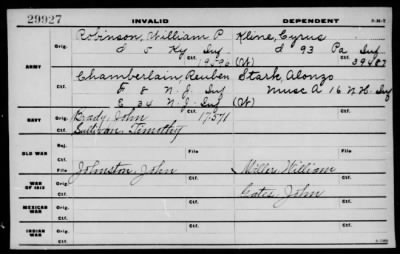 29927 INVALID DEPENDENT
Orig. Robinson, William P. Kline, Cyrus
D 5 Ky Inf D 93 Pa Inf
Ctf. 19596 (W) 39487
ARMY
Orig. Chamberlain, Reuben Stark, Alonzo
F 8 N.J. Inf Musc A 16 N.H. Inf
Ctf. E 34 N.J. Inf (W)
NAVY Orig. Brady, John 17571
Ctf. Sullivan, Timothy
OLD WAR Rej. File File
Ctf.
WAR OF 1812 Orig. Johnston, John Miller, William
Ctf. Cates, John
MEXICAN WAR Orig.
Ctf.
INDIAN WAR Orig.
Ctf.